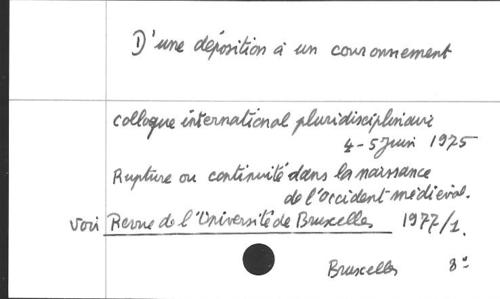 D'une déposition à un couronnement
colloque international pluridisciplinaire
4-5 Juin 1975
Rupture ou continuité dans la naissance
de l'Occident médiéval.
voir Revue de l'Université de Bruxelles 1977/1.
Bruxelles 8°